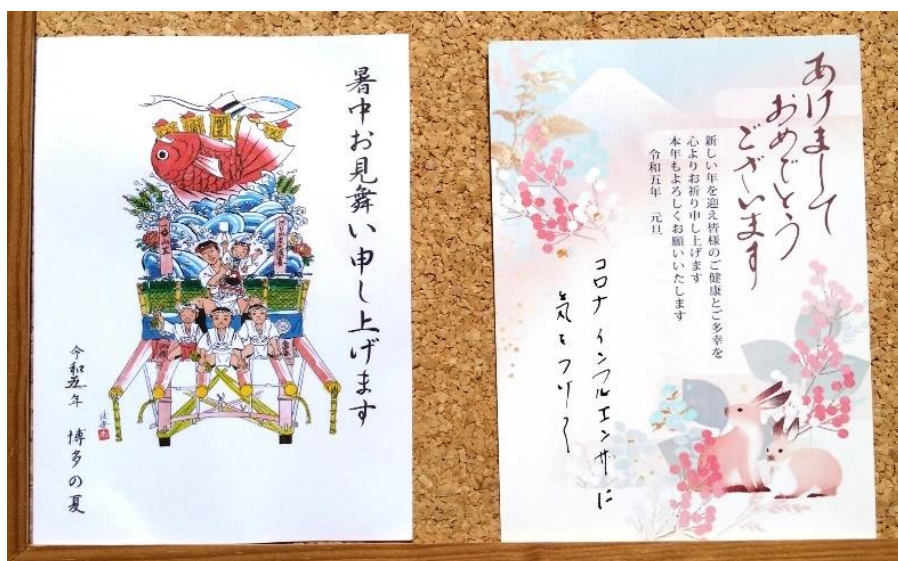 暑中お見舞い申し上げます
令和五年 博多の夏
あけまして
おめでとう
ございます
新しい年を迎え皆様のご健康とご多幸を
心よりお祈り申し上げます
本年もよろしくお願いいたします
令和五年 元旦
コロナ インフルエンザに
気をつけて